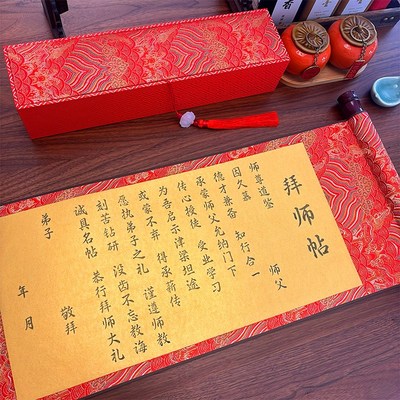 拜师帖
师父
师尊道鉴
因久慕
德才兼备 知行合一
承蒙师父允纳门下
传心授徒 受业学习
为吾启示津梁坦途
或蒙不弃 得承薪传
愿执弟子之礼 谨遵师教
刻苦钻研 没齿不忘教诲
诚具名帖 恭行拜师大礼
敬拜
弟子
年 月
香